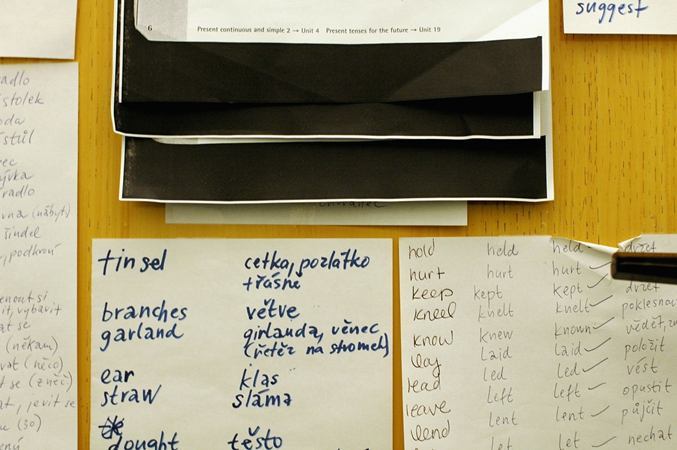 suggest
6 Present continuous and simple 2 → Unit 4 Present tenses for the future → Unit 19
adlo
stolek
oda
stůl
radlo
(nábyt)
šindel
podkroví
(někam)
(něčo)
(30)
tinsel cetka, pozlátko
třásně
branches větve
garland girlanda, věnec
(řetěz na stromek)
ear klas
straw sláma
dought těsto
hold held held držet
hurt hurt hurt
keep kept kept držet
kneel knelt knelt poklesnou
know knew known vědět, zn
lay laid laid položit
lead led led vést
leave left left opustit
lend lent lent půjčit
let let nechat